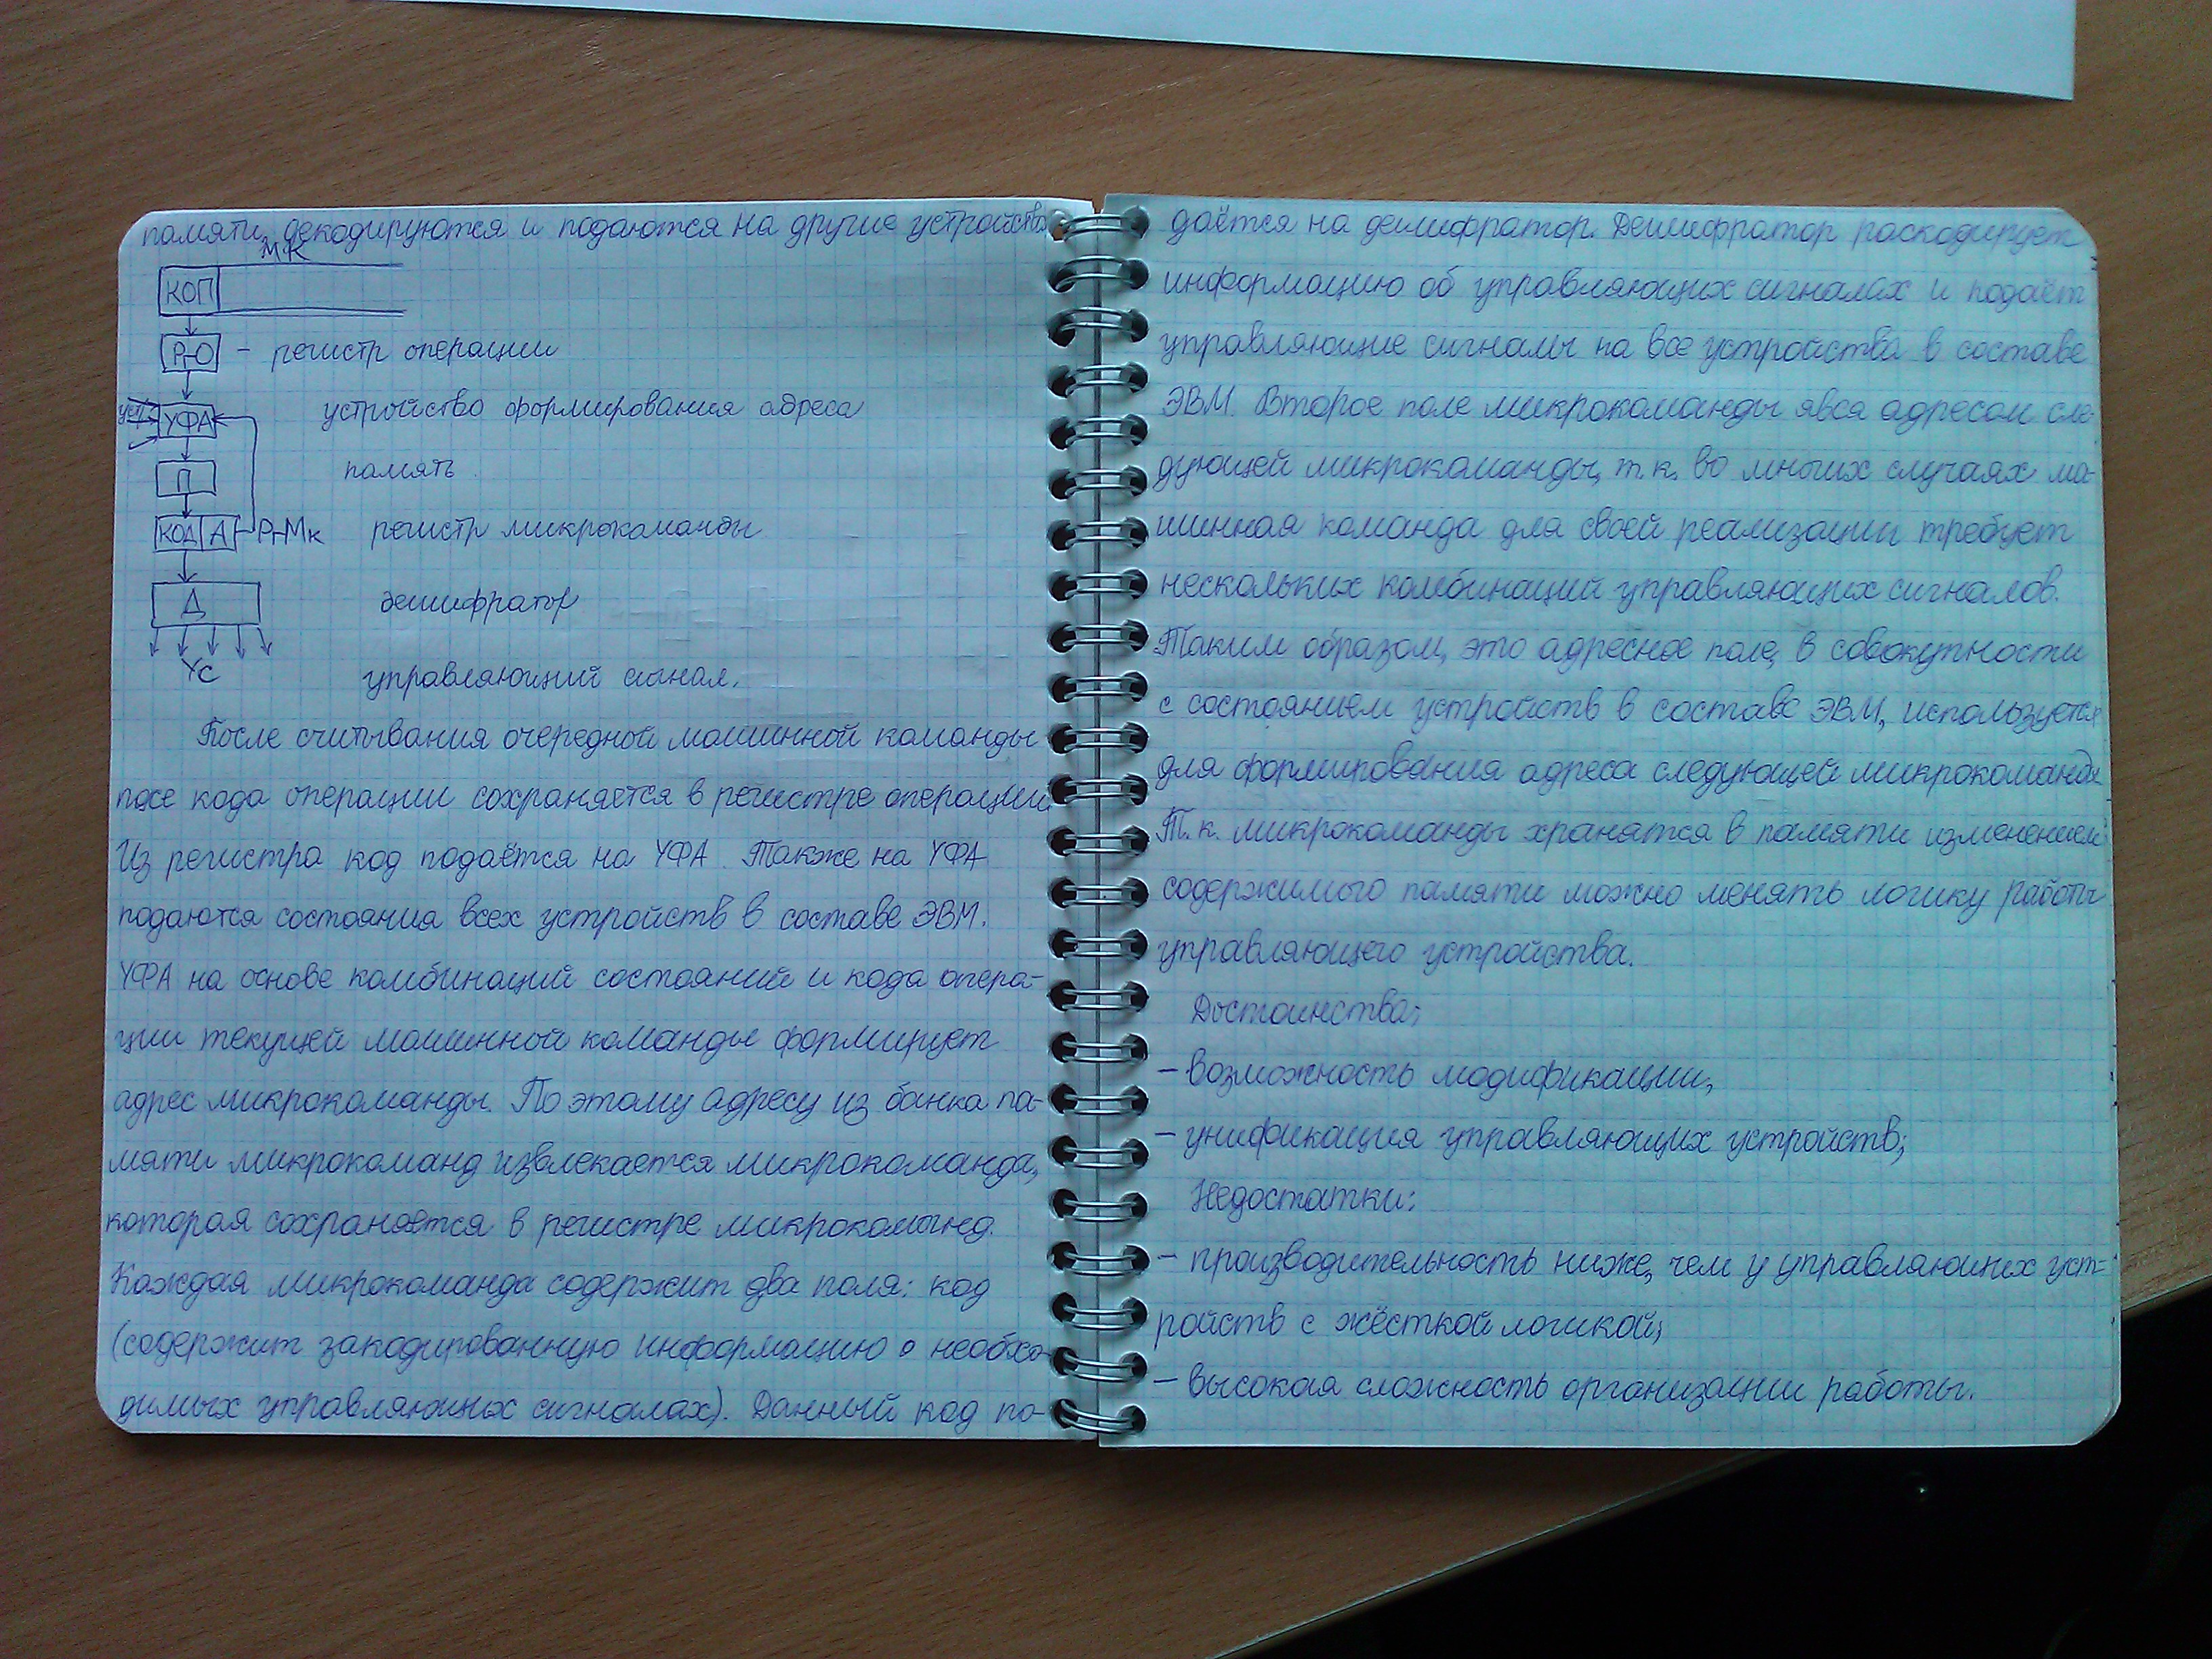 памяти, декодируются и подаются на другие устройства
МК
КОП
РгО - регистр операции
уст. УФА устройство формирования адреса
П память
КОД А РгМк регистр микрокоманды
Д дешифратор
УС управляющий сигнал.
После считывания очередной машинной команды
поле кода операции сохраняется в регистре операции.
Из регистра код подаётся на УФА. Также на УФА
подаются состояния всех устройств в составе ЭВМ.
УФА на основе комбинаций состояний и кода опера-
ции текущей машинной команды формирует
адрес микрокоманды. По этому адресу из банка па-
мяти микрокоманд извлекается микрокоманда,
которая сохраняется в регистре микрокомынд.
Каждая микрокоманда содержит два поля: код
(содержит закодированную информацию о необхо-
димых управляющих сигналах). Данный код по-
даётся на дешифратор. Дешифратор раскодирует
информацию об управляющих сигналах и подаёт
управляющие сигналы на все устройства в составе
ЭВМ. Второе поле микрокоманды явся адресом сле-
дующей микрокоманды, т.к. во многих случаях ма-
шинная команда для своей реализации требует
нескольких комбинаций управляющих сигналов.
Таким образом, это адресное поле, в совокупности
с состоянием устройств в составе ЭВМ, используется
для формирования адреса следующей микрокоманды.
Т.к. микрокоманды хранятся в памяти изменением
содержимого памяти можно менять логику работы
управляющего устройства.
Достоинства:
- возможность модификации;
- унификация управляющих устройств;
Недостатки:
- производительность ниже, чем у управляющих уст-
ройств с жёсткой логикой;
- высокая сложность организации работы.